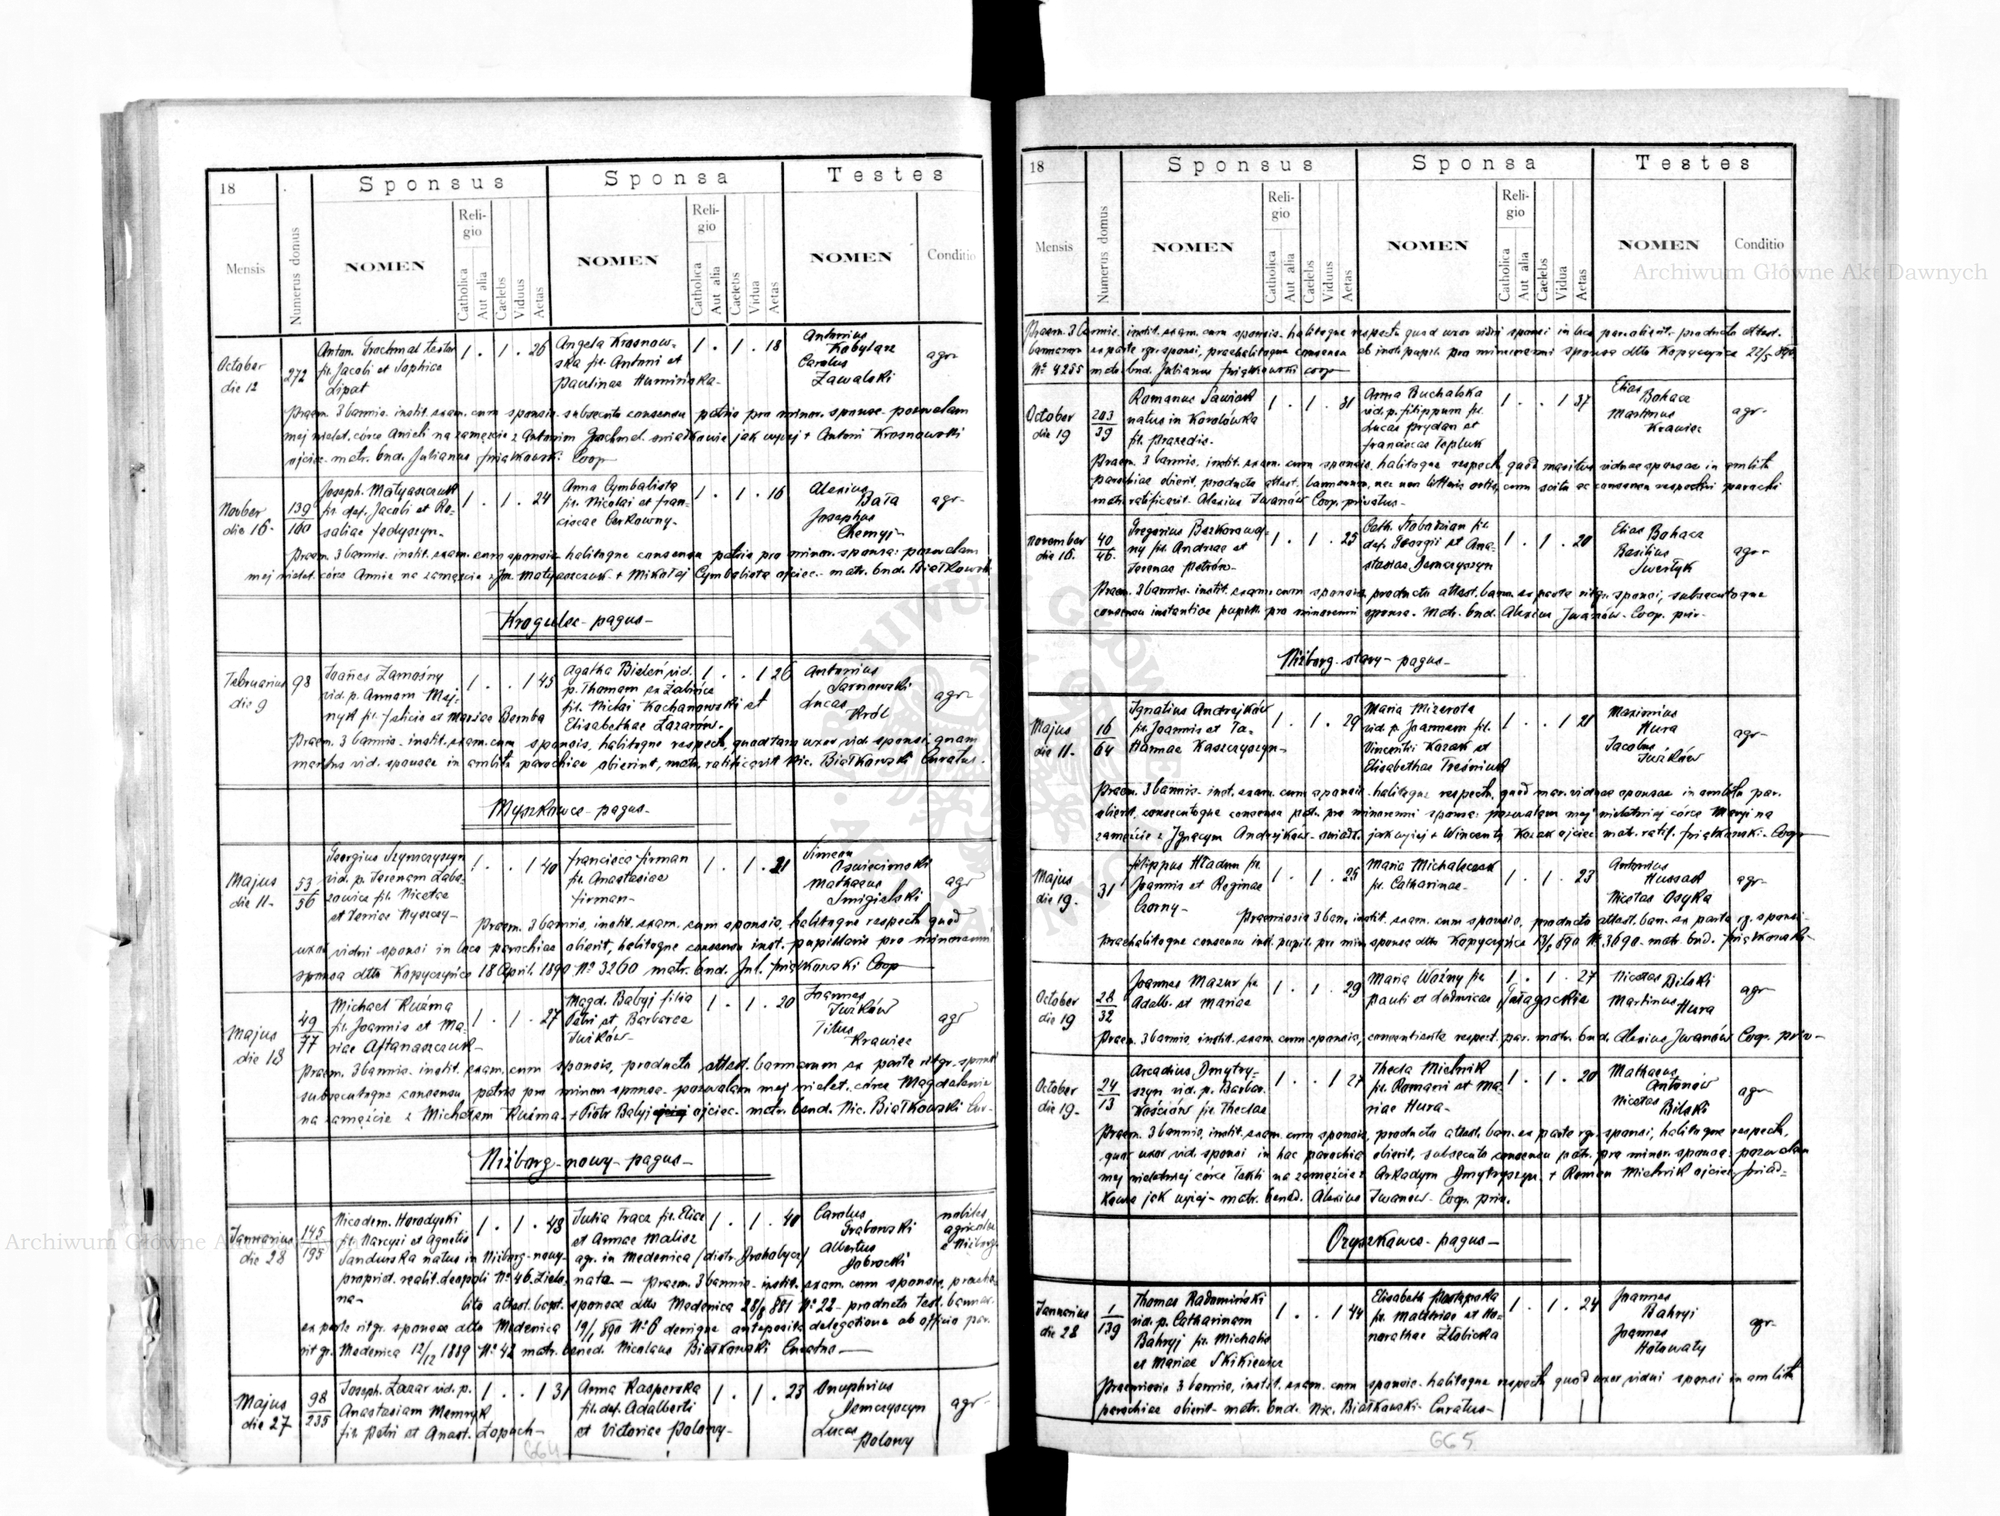 18
Sponsus
Sponsa
Testes
Mensis
Numerus domus
NOMEN
Religio
Catholica
Aut alia
Caelebs
Viduus
Aetas
NOMEN
Religio
Catholica
Aut alia
Caelebs
Vidua
Aetas
NOMEN
Conditio
October die 12
272
Anton. Grochmal
fil. Jacobi et Sophiae
Lipat
1 . 1 . 26
Angela Krosnow-
ska fil. Antoni et
Paulinae Humińska-
1 . 1 . 18
Antonius
Kobylarz
Carolus
Zawalski
agr-
Praem. 3 bannis. instit. exam. cum sponsis subsecuto consensu patris pro minor. sponsae pozwalam
mej nielet. córce Anieli na zamęście z Antonim Grochmal. świadkowie jak wyżej + Antoni Krosnowski
ojciec- matr. bnd. Julianus Coop
November die 16-
139/160
Joseph. Matyaszczuk
fil. def. Jacobi et Ro-
saliae Fedyszyn-
1 . 1 . 24
Anna Cymbalista
fil. Nicolai et Fran-
ciscae Cerkowny-
1 . 1 . 16
Alexius
Bała
Josephus
Chemyj-
agr-
Praem. 3 bannis. instit. exam. cum sponsis habitoque consensu patris pro minor. sponsa: pozwalam
mej nielet. córce Annie na zamęście z Matyaszczuk + Mikołaj Cymbalista ojciec- matr. bnd. Białkowski
Krogulec- pagus-
Februarius die 9
98
Joañes Zamośny
vid. p. Annam Mej-
nyk fil. Felicis et Mariae Bomba
1 . . 1 45
Agatha Bieleń vid.
p. Thomam ex Żabińce
fil. Niclai Kochanowski et
Elisabethae Łazarów-
1 . . 1 26
Antonius
Sarnowski
Lucas
Król
agr-
Praem. 3 bannis- instit. exam. cum sponsis, habitoque respect. quod tam uxor vid. sponsi quam
maritus vid. sponsae in ambitu parochiae obierint, matr. ratificavit Nic. Białkowski Curatus.
Myszkowce- pagus-
Majus die 11-
53/56
Georgius Szymczyszyn
vid. p. Xerenam
fil. Nicetae
et Xeniae
1 . . 1 40
Francisca Firman
fil. Anastasiae
Firman-
1 . 1 . 21
Simeon
Oswiecimski
Mathaeus
Smigielski
agr
Praem. 3 bannis, instit. exam. cum sponsis, habitoque respectu quod
uxor vidui sponsi in loco parochiae obierit, habitoque consensu inst. pupillaris pro minorenni
sponsa dtto Kopyczyńce 18 April. 1890 Nº 3260 matr. bnd. Jul. Coop
Majus die 18
49/77
Michael Kuźma
fil. Joannis et Ma-
riae Aftanaszczuk-
1 . 1 . 27
Magd. Babyj filia
Petri et Barbarae
Juśków-
1 . 1 . 20
Joannes
Juśków
Titus
Krawiec
agr
Praem. 3 bannis- instit. exam. cum sponsis, producto attest. bannorum ex parte rit. gr. sponsi
subsecutoque consensu patris pro minor. sponsa- pozwalam mej nielet. córce Magdalenie
na zamęście z Michałem Kuźma- + Piotr Babyj ojciec- matr. bend. Nic. Białkowski Cur-
Niżborg- nowy- pagus-
Januarius die 28
145/195
Nicodem. Horodyski
fil. Narcysi et Agnetis
Sandurska natus in Niżborg-nowy-
propriet. realit. Leopoli Nº 46. Zielo-
na-
1 . 1 . 43
Julia Tracz fil. Eliae
et Annae Malisz
agr. in Medenica /distr. Drohobycz/
nata-
1 . 1 . 40
Carolus
Grabowski
Albertus
Dobrocki
nobiles
agricolae
e Niżborg
praem. 3 bannis- instit. exam. cum sponsis, praeha-
bito attest. bapt. sponsae dtto Medenica Nº 22- producto test. bannor.
ex parte rit gr. sponsae dtto Medenica 19/1 890 Nº 6 denique anteposita delegatione ab officio par.
rit gr. Medenica 12/12 1889 Nº 42 matr. bened. Nicolaus Białkowski Curatus-
Majus die 27
98/235
Joseph. Łazar vid. p.
Anastasiam Memryk
fil. Petri et Anast. Łopuch-
1 . . 1 31
Anna Kasperska
fil. def. Adalberti
et Victoriae Polowy-
1 . 1 . 23
Onuphrius
Demczyszyn
Lucas
Polowy
agr-
664
18
Sponsus
Sponsa
Testes
Mensis
Numerus domus
NOMEN
Religio
Catholica
Aut alia
Caelebs
Viduus
Aetas
NOMEN
Religio
Catholica
Aut alia
Caelebs
Vidua
Aetas
NOMEN
Conditio
Praem. 3 bannis. instit. exam. cum sponsis. habitoque respectu quod uxor vidui sponsi in loco par. obierit- producto attest.
bannorum ex parte rgr. sponsi, praehabitoque consensu ab inst. pupill. pro minorenni sponsa dtto Kopyczyńce
Nº 4255 matr. bnd. Julianus Coop
October die 19
203/39
Romanus Sawiak
natus in Korolówka
fil. Praxedis-
1 . 1 . 31
Anna Buchalska
vid. p. Filippum fil.
Lucas Prydan et
Franciscae Tepluk
1 . . 1 37
Elias
Bohacz
Martinus
Krawiec
agr-
Praem. 3 bannis. instit. exam. cum sponsis, habitoque respectu quod maritus viduae sponsae in ambitu
parochiae obierit, producto attest. bannorum, nec non cum scitu ac consensu respectivi parochi
matr. ratificavit Alexius Iwanów Coop. privatus-
November die 16.
40/46
Gregorius Bezkorowaj-
ny fil. Andreae et
Xerenae Petrów-
1 . 1 . 25
Cath. fil.
def. Georgii et Ana-
stasiae Demczyszyn
1 . 1 . 20
Elias Bohacz
Basilius
Swerłyk
agr-
Praem. 3 bannis. instit. exam. cum sponsis, producto attest. bann. ex parte rit gr. sponsi, subsecutoque
consensu instantiae pupill. pro minorenni sponsa. Matr. bnd. Alexius Iwanów- Coop. priv-
Niżborg- stary- pagus-
Majus die 11-
16/64
Ignatius Andrejków
fil. Joannis et Ta-
Hannae Kaszczyszyn-
1 . 1 . 29
Maria Mizerota
vid. p. Joannem fil.
Vincentii Kozak et
Elisabethae Treśniuk
1 . . 1 21
Maximius
Hura
Jacobus
Juśków
agr-
Praem. 3 bannis- inst. exam. cum sponsis- habitoque respectu, quod mar. viduae sponsae in ambitu par.
obierit, consecutoque consensu patr. pro minorenni sponsa: pozwalam mej nieletniej córce Maryi na
zamęście z Ignacym Andrejków- świadk. jak wyżej + Wincenty Kozak ojciec matr. ratif. Coop
Majus die 19-
31
Filippus Hładun fil.
Joannis et Reginae
Czorny-
1 . 1 . 25
Maria Michalczuk
fil. Catharinae-
1 . 1 . 23
Antonius
Hussak
Nicolas Osyka
agr-
Praemissis 3 bann. instit. exam. cum sponsis, producto attest. ban. ex parte rgr. sponsi-
praehabitoque consensu inst. pupil. pro min. sponsa dtto Kopyczyńce Nº 3690- matr. bnd.
October die 19
28/32
Joannes Mazur fil.
Adalb. et Mariae
1 . 1 . 29
Maria Woźny fil.
Pauli et Ludovicae
1 . 1 . 27
Nicolas Bilski
Martinus
Hura
agr-
Praem. 3 bannis instit. exam. cum sponsis, consentiente respect. par. matr. bnd. Alexius Iwanów Coop. priv-
October die 19-
24/13
Arcadius Dmytry-
szyn vid. p. Barbar.
Kościów fil. Theclae
1 . . 1 27
Thecla Mielnik
fil. Romani et Ma-
riae Hura-
1 . 1 . 20
Mathaeus
Antonów
Nicolas
Bilski
agr-
Praem. 3 bannis, instit. exam. cum sponsis, producto attest. ban. ex parte rgr. sponsi, habitoque respectu,
quod uxor vid. sponsi in hac parochia obierit, subsecuto consensu patr. pro minor. sponsa: pozwalam
mej nieletniej córce Tekli na zamęście z Arkadym Dmytryszyn. + Roman Mielnik ojciec, świad-
kowie jak wyżej- matr. bened. Alexius Iwanow- Coop. priv.
Oryszkowce- pagus-
Januarius die 28
1/139
Thomas Radomiński
vid. p. Catharinam
Bahryj fil. Michalis
et Mariae Skikiewicz
1 . . 1 44
Elisabeth
fil. Matthiae et Ho-
noratae Złobicka
1 . 1 . 24
Joannes
Bahryj
Joannes
Hołowaty
agr-
Praemissis 3 bannis, instit. exam. cum sponsis- habitoque respectu quod uxor vidui sponsi in ambitu
parochiae obierit- matr. bnd. Nic. Białkowski- Curatus-
665
Archiwum Główne Akt Dawnych
Archiwum Główne Akt Dawnych
ARCHIWUM GŁÓWNE AKT DAWNYCH